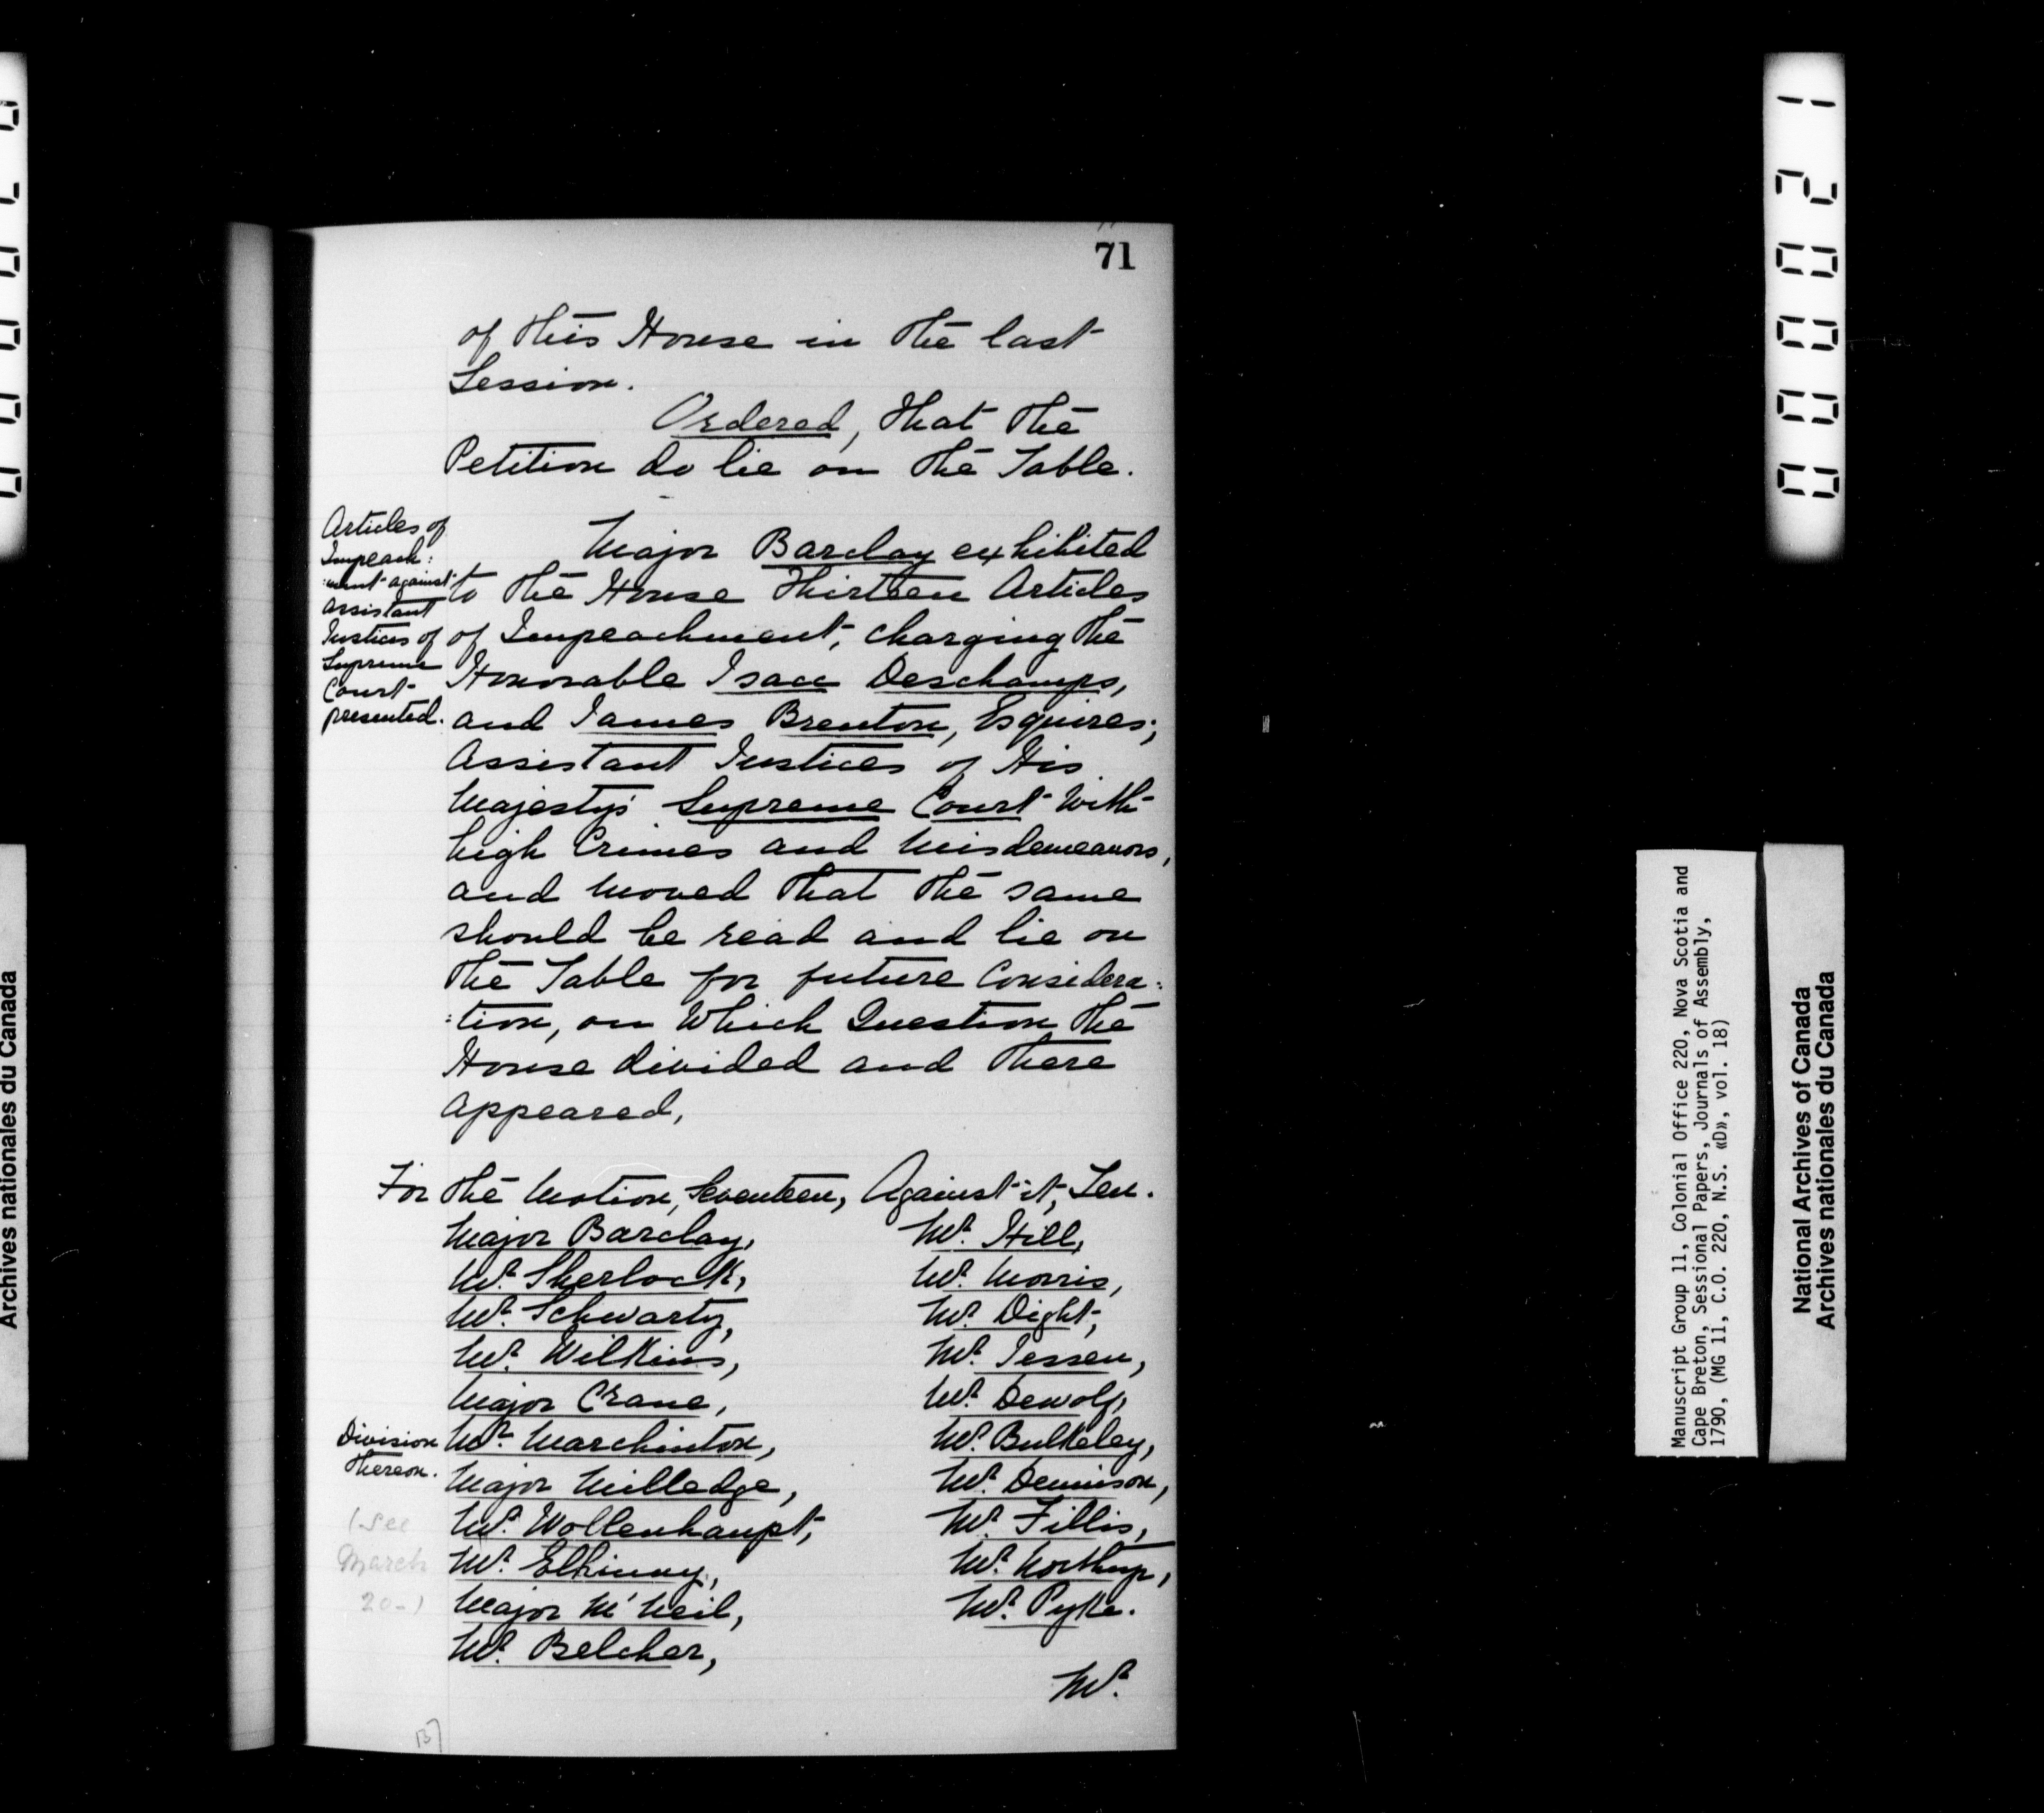 71
of this House in the last
Session.
Ordered, that the
Petition do lie on the Table.
Articles of
Impeach:
:ment against
Assistant
Justices of
Supreme
Court
presented.
Major Barclay exhibited
to the House Thirteen Articles
of Impeachment, charging the
Honorable Isaac Deschamps,
and James Brenton, Esquires;
Assistant Justices of His
Majesty's Supreme Court with
high Crimes and Misdemeanors,
and moved that the same
should be read and lie on
the Table for future Considera:
:tion, on which Question the
House divided and there
appeared,
For the Motion, Seventeen, Against it, Ten.
Major Barclay, Mr. Hill,
Mr. Sherlock, Mr. Morris,
Mr. Schwartz, Mr. Dight,
Mr. Wilkins, Mr. Jessen,
Major Crane, Mr. Dewolf,
Division
thereon.
Mr. Marchinton, Mr. Bulkeley,
Major Milledge, Mr. Dennison,
Mr. Wollenhaupt, Mr. Fillis,
Mr. Elkinny, Mr. Northup,
Major McNeil, Mr. Pyke.
Mr. Belcher,
(See
March
20-)
Mr.
000021
Manuscript Group 11, Colonial Office 220, Nova Scotia and
Cape Breton, Sessional Papers, Journals of Assembly,
1790, (MG 11, C.O. 220, N.S. «D», vol. 18)
National Archives of Canada
Archives nationales du Canada
Archives nationales du Canada